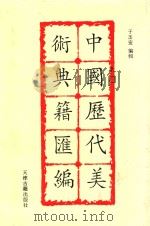 于玉安 編輯
中國歷代美
術典籍匯編
天津古籍出版社
www.toopoo.com